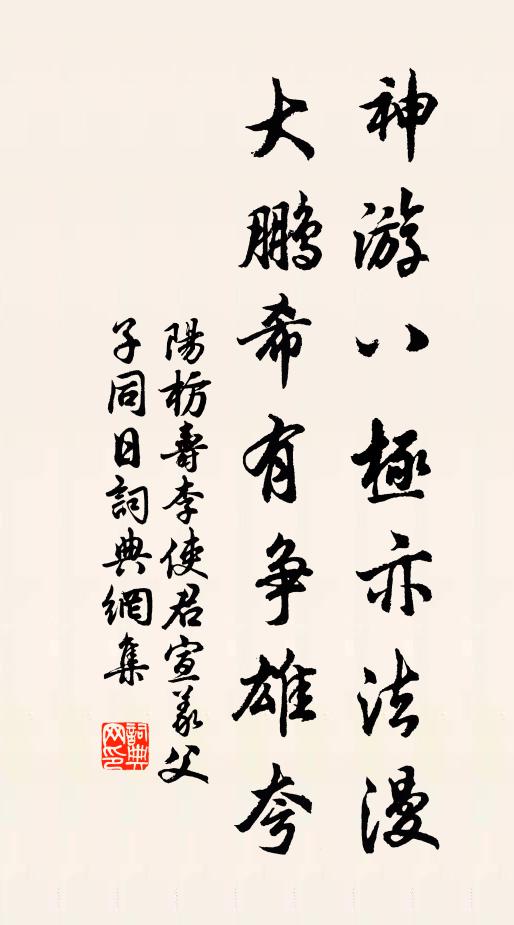 神游八極亦法漫
大鹏希有争雄夸
陽枋壽李使君宣義父
子同日詞典網集
詞典網印